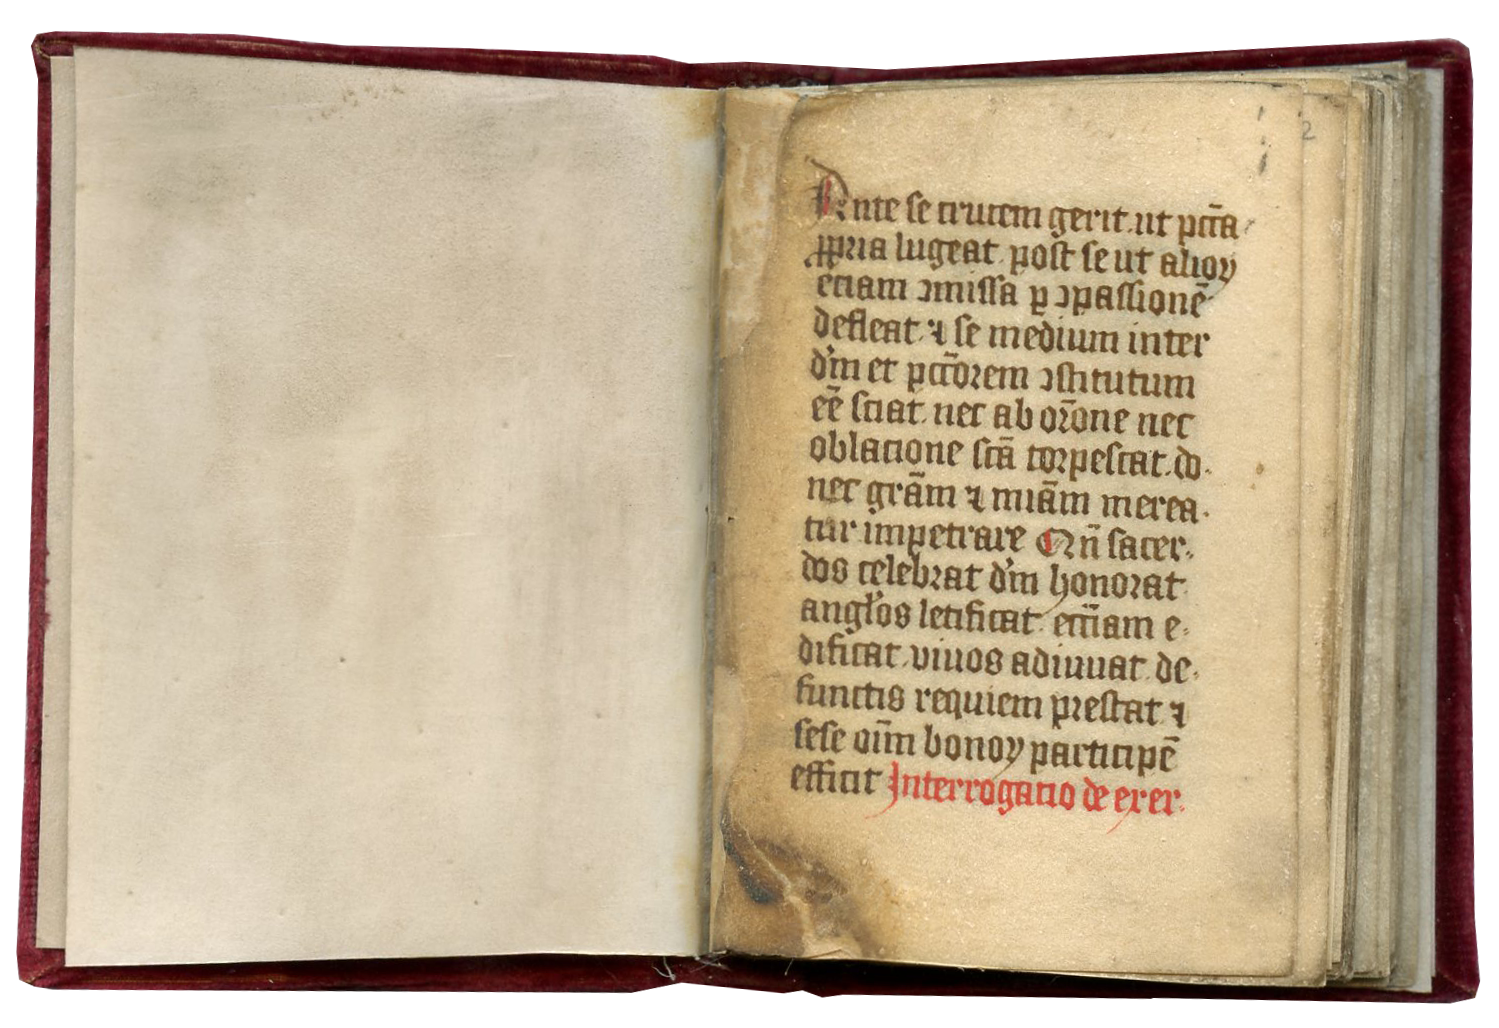 2
Ante se crucem gerit. ut pctā
ꝓpria lugeat. post se ut alioꝝ
etiam ꝯmissa ꝑ ꝯpassionē
defleat. ⁊ se medium inter
dm̄ et pctōrem ꝯstitutum
eē̄ sciat. nec ab or̄one nec
oblacione sctā torpescat. do-
nec grām ⁊ miām merea-
tur impetrare Qn̄ sacer-
dos celebrat dm̄ honorat
anglos letificat. eccīam e-
dificat. viuos adiuuat. de-
functis requiem prestat ⁊
sese oīm bonoꝝ participē
efficit Interrogatio de exer-